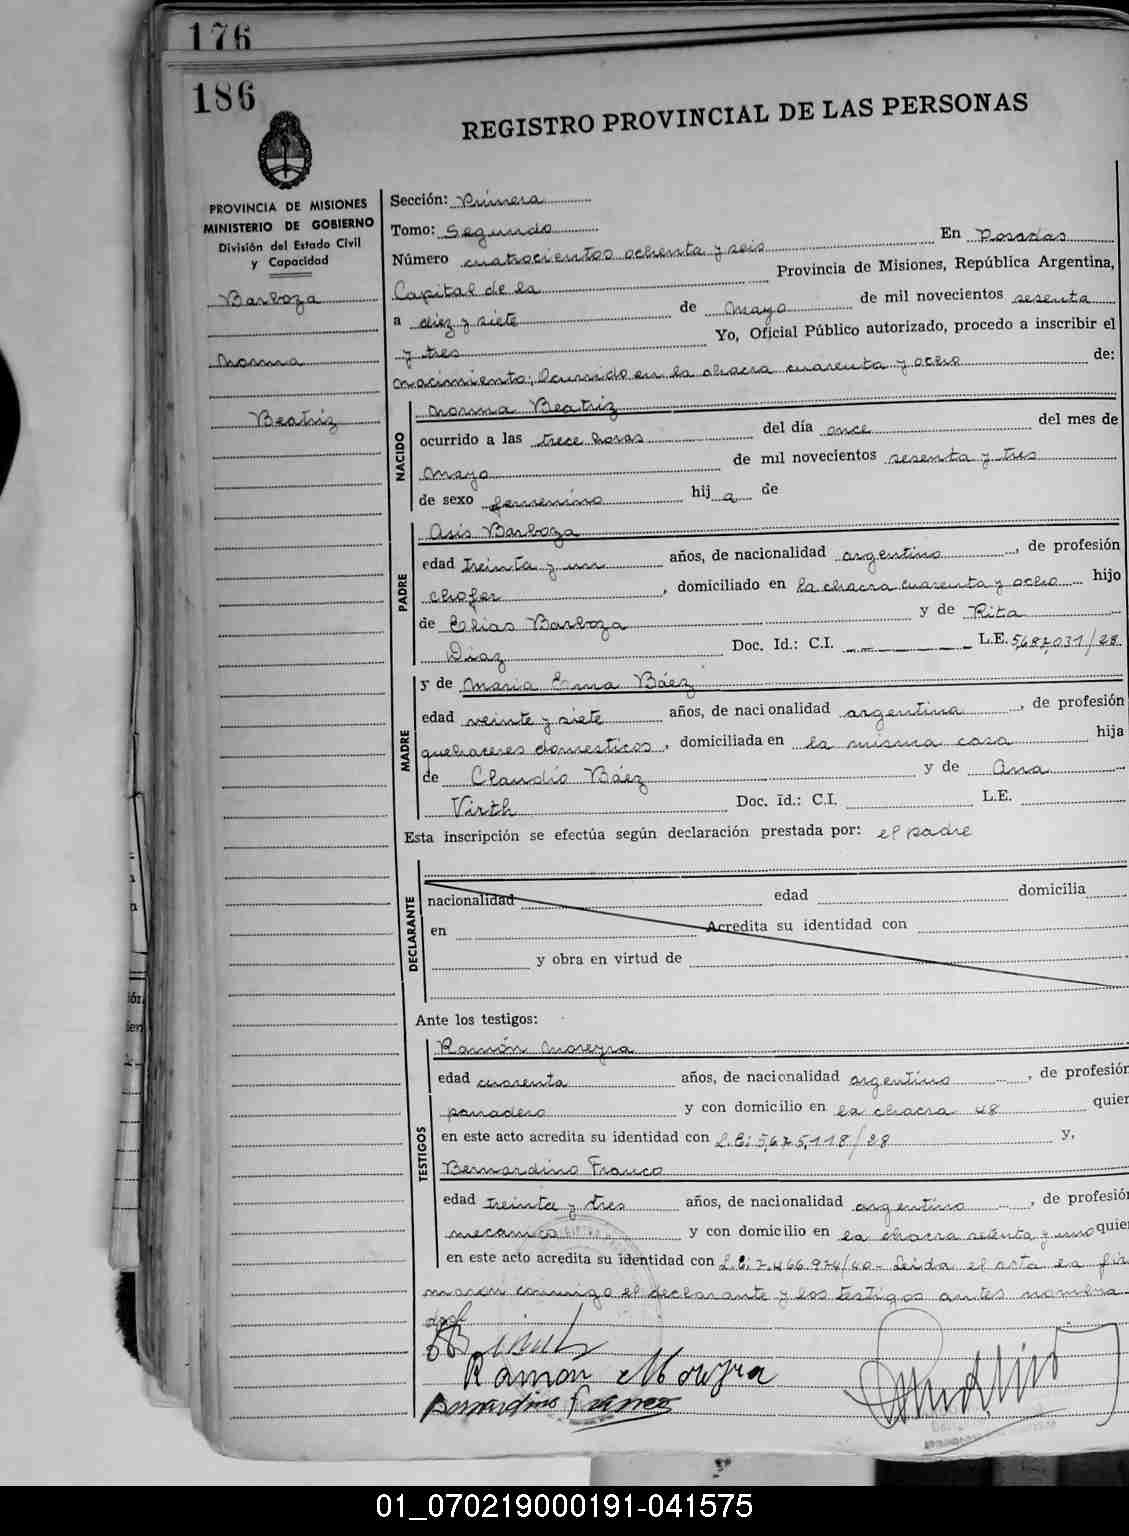 176
186
REGISTRO PROVINCIAL DE LAS PERSONAS
PROVINCIA DE MISIONES
MINISTERIO DE GOBIERNO
División del Estado Civil
y Capacidad
Barboza
Norma
Beatriz
Sección: Primera
Tomo: Segundo
Número cuatrocientos ochenta y seis En Posadas
Capital de la Provincia de Misiones, República Argentina,
a diez y siete de Mayo de mil novecientos sesenta
y tres Yo, Oficial Público autorizado, procedo a inscribir el
nacimiento; Ocurrido en la chacra cuarenta y ocho de:
NACIDO
Norma Beatriz
ocurrido a las trece horas del día once del mes de
Mayo de mil novecientos sesenta y tres
de sexo femenino hij a de
PADRE
Asis Barboza
edad treinta y un años, de nacionalidad argentino, de profesión
chofer, domiciliado en la chacra cuarenta y ocho hijo
de Elias Barboza y de Rita
Diaz Doc. Id.: C.I. L.E. 5,687,031/28
MADRE
y de Maria Erma Báez
edad veinte y siete años, de nacionalidad argentina, de profesión
quehaceres domesticos, domiciliada en la misma casa hija
de Claudio Báez y de Ana
Virth Doc. Id.: C.I. L.E.
Esta inscripción se efectúa según declaración prestada por: el padre
DECLARANTE
nacionalidad edad domicilia
en Acredita su identidad con
y obra en virtud de
Ante los testigos:
TESTIGOS
Ramón Moreyra
edad cuarenta años, de nacionalidad argentino, de profesión
panadero y con domicilio en la chacra 48 quien
en este acto acredita su identidad con L.E: 5,675,118/28 y,
Bernardino Franco
edad treinta y tres años, de nacionalidad argentino, de profesión
mecanico y con domicilio en la chacra setenta y uno quien
en este acto acredita su identidad con L.E: 7.466.974/40- Leida el acta la fir
maron conmigo el declarante y los testigos antes nombra
dos
Ramon Moreyra
Bernardino Franco
01_070219000191-041575